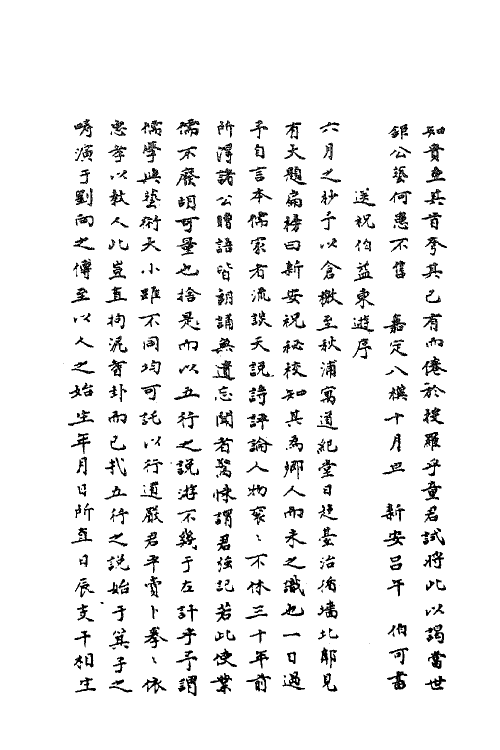 知貴益其首季其已有而倦於搜羅乎童君試將此以謁當世
鉅公藝何患不售　嘉定八禩十月旦　新安呂午　伯可書
送祝伯益東遊序
六月之杪予以倉檄至秋浦寓道紀堂日趨臺治循墻北鄰見
有大題扁榜曰新安祝秘校知其為鄉人而未之識也一日過
予自言本儒家者流談天說詩評論人物袞〻不休三十年前
所淂諸公贈語皆朗誦無遺忘聞者驚悚謂君强記若此使業
儒不廢胡可量也捨是而以五行之說游不幾于左計乎予謂
儒學與藝術大小雖不同均可託以行道嚴君平賣卜拳〻依
忠孝以教人此豈直拘泥蓍卦而已㦲五行之說始于箕子之
疇演于劉向之傳至以人之始生年月日所直日辰支干相生